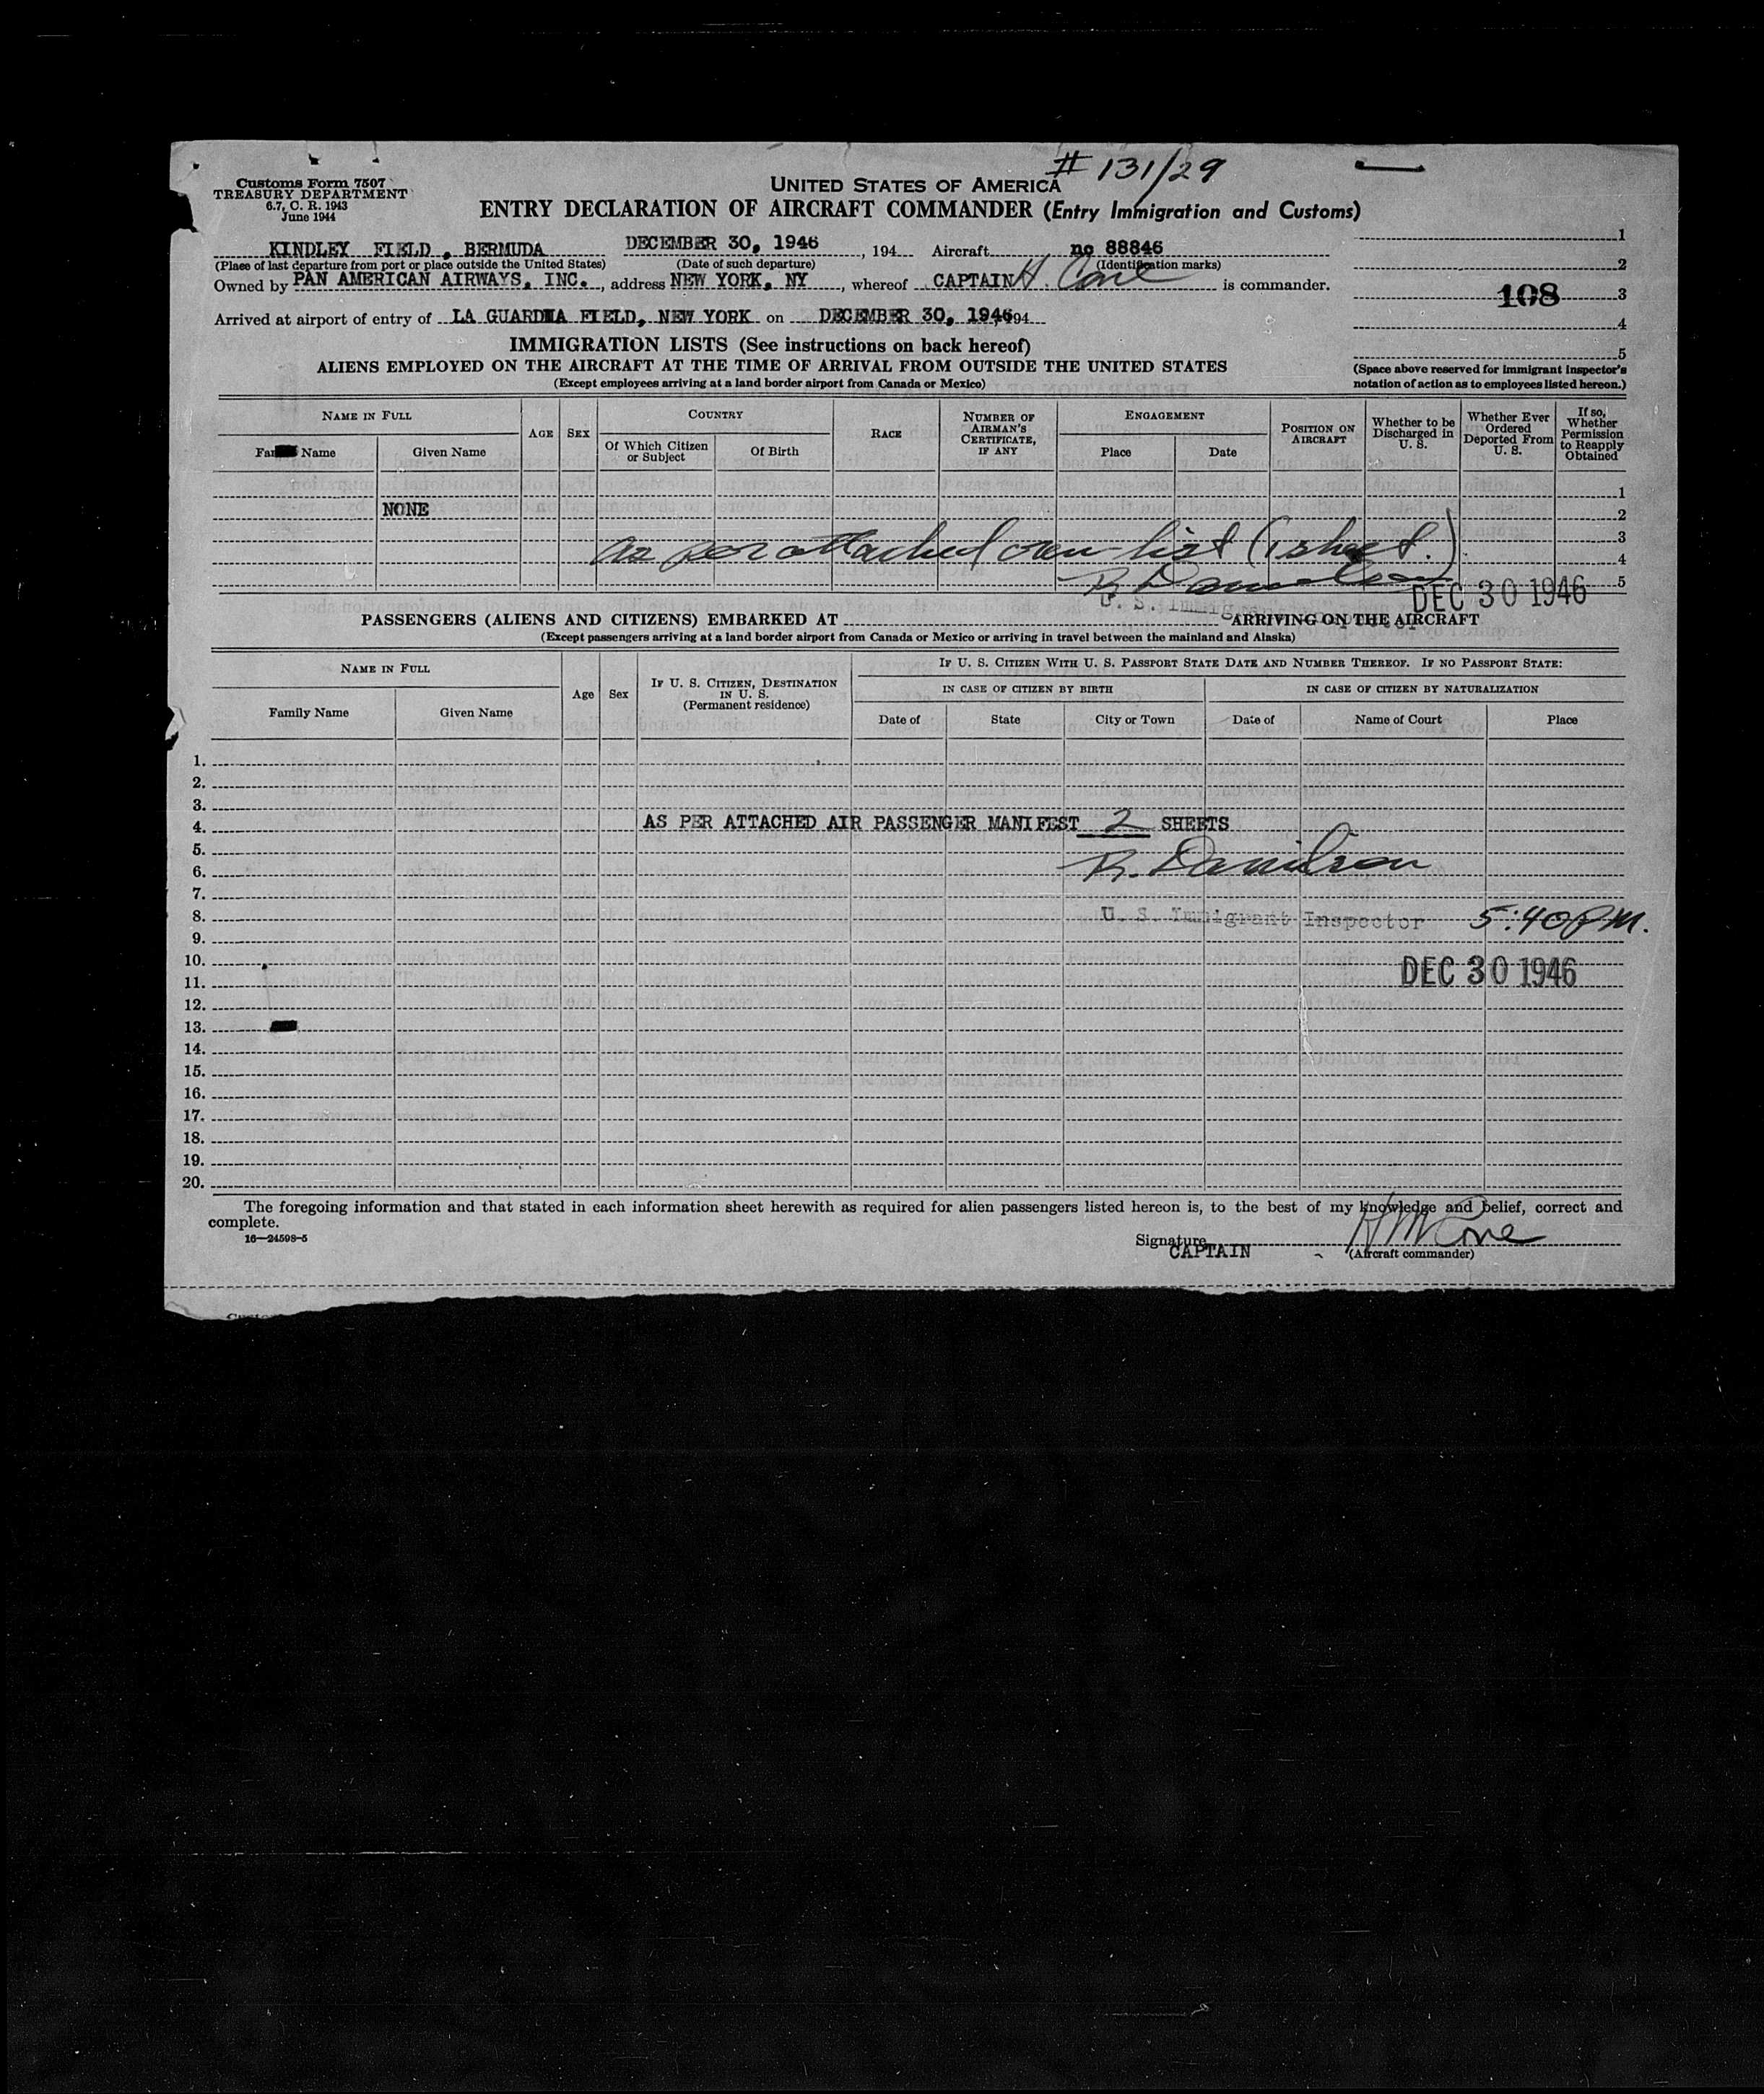 # 131/29
Customs Form 7507
TREASURY DEPARTMENT
6.7, C. R. 1943
June 1944
UNITED STATES OF AMERICA
ENTRY DECLARATION OF AIRCRAFT COMMANDER (Entry Immigration and Customs)
KINDLEY FIELD, BERMUDA DECEMBER 30, 1946, 194 Aircraft nc 88846
(Place of last departure from port or place outside the United States) (Date of such departure) (Identification marks)
Owned by PAN AMERICAN AIRWAYS, INC., address NEW YORK, NY, whereof CAPTAIN H. Cone is commander.
Arrived at airport of entry of LA GUARDIA FIELD, NEW YORK on DECEMBER 30, 1946, 194
1
2
108 3
4
5
(Space above reserved for immigrant inspector's
notation of action as to employees listed hereon.)
IMMIGRATION LISTS (See instructions on back hereof)
ALIENS EMPLOYED ON THE AIRCRAFT AT THE TIME OF ARRIVAL FROM OUTSIDE THE UNITED STATES
(Except employees arriving at a land border airport from Canada or Mexico)
NAME IN FULL
Name
Given Name
AGE
SEX
COUNTRY
Of Which Citizen
or Subject
Of Birth
RACE
NUMBER OF
AIRMAN'S
CERTIFICATE,
IF ANY
ENGAGEMENT
Place
Date
POSITION ON
AIRCRAFT
Whether to be
Discharged in
U. S.
Whether Ever
Ordered
Deported From
U. S.
If so,
Whether
Permission
to Reapply
Obtained
1
NONE 2
3
as per attached crew list (1 sheet.) 4
R. Danielson 5
U. S. Immigrant Inspector
DEC 30 1946
PASSENGERS (ALIENS AND CITIZENS) EMBARKED AT ARRIVING ON THE AIRCRAFT
(Except passengers arriving at a land border airport from Canada or Mexico or arriving in travel between the mainland and Alaska)
NAME IN FULL
Family Name
Given Name
Age
Sex
IF U. S. CITIZEN, DESTINATION
IN U. S.
(Permanent residence)
IF U. S. CITIZEN WITH U. S. PASSPORT STATE DATE AND NUMBER THEREOF. IF NO PASSPORT STATE:
IN CASE OF CITIZEN BY BIRTH
IN CASE OF CITIZEN BY NATURALIZATION
Date of
State
City or Town
Date of
Name of Court
Place
1.
2.
3.
4. AS PER ATTACHED AIR PASSENGER MANIFEST 2 SHEETS
5.
6. R. Danielson
7.
8. U. S. Immigrant Inspector 5:40 P M.
9.
10.
11. DEC 30 1946
12.
13.
14.
15.
16.
17.
18.
19.
20.
The foregoing information and that stated in each information sheet herewith as required for alien passengers listed hereon is, to the best of my knowledge and belief, correct and
complete.
16—24598-5
Signature H M Cone
CAPTAIN (Aircraft commander)